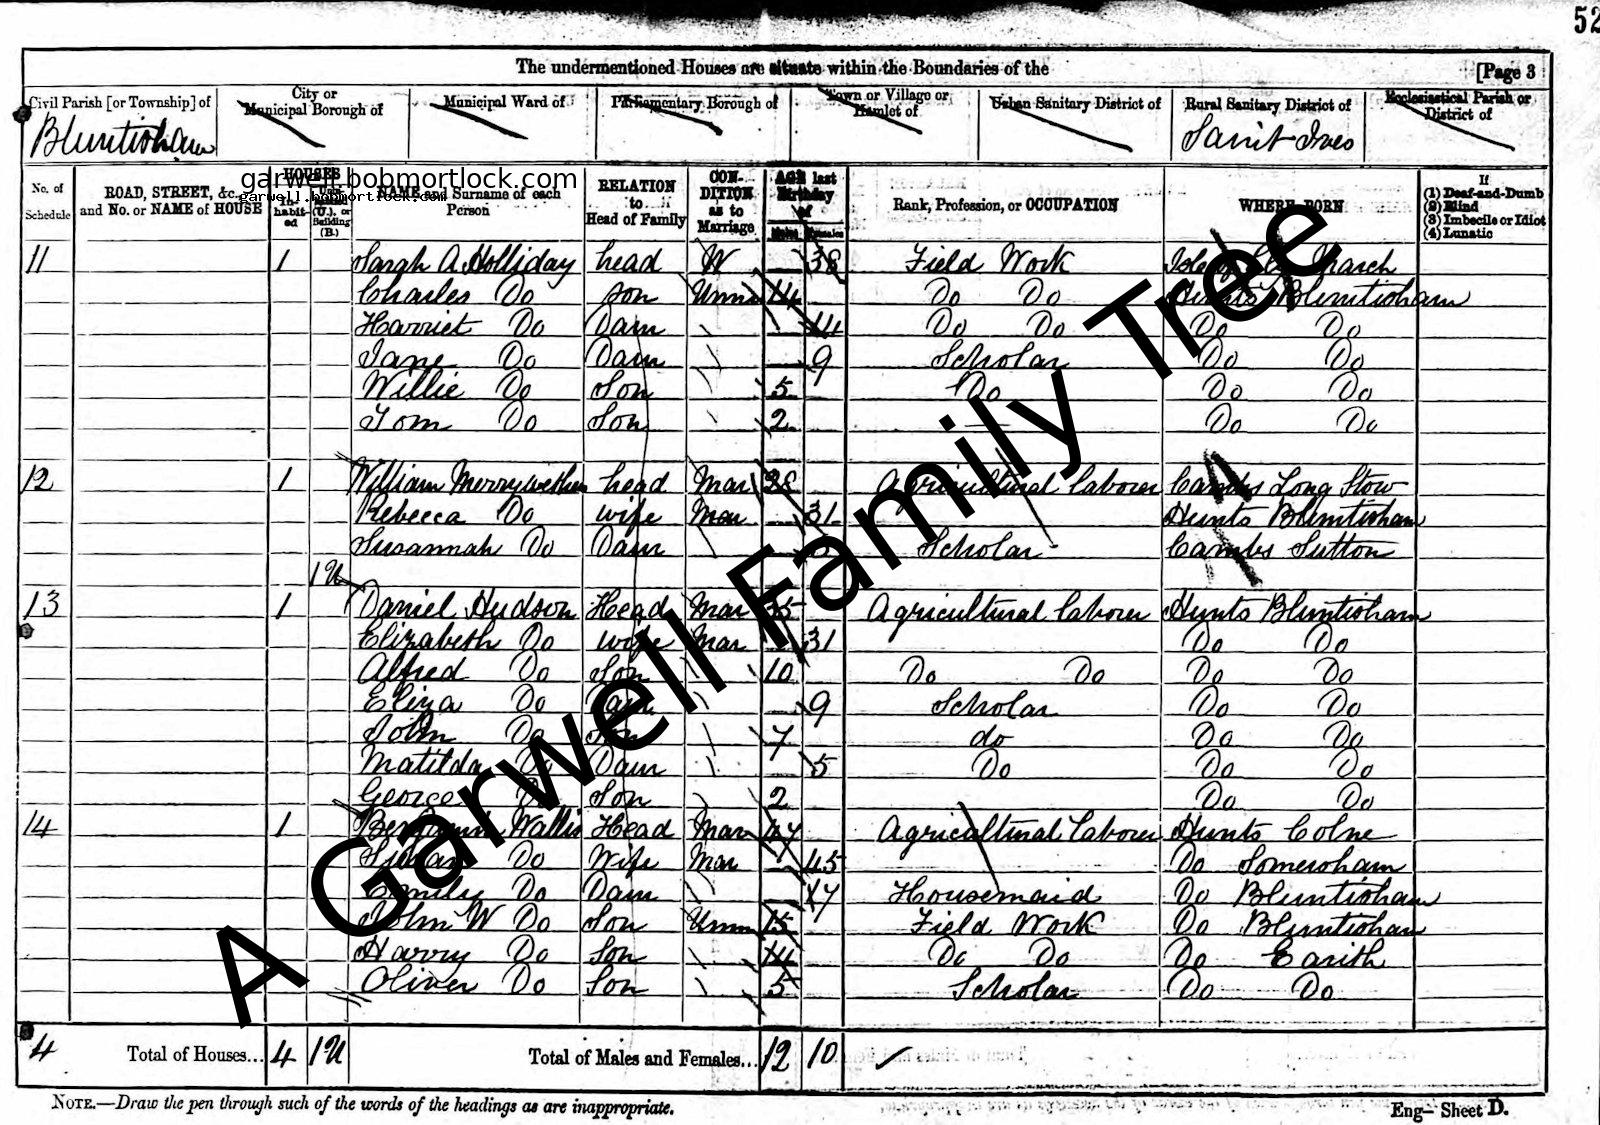 52
The undermentioned Houses are situate within the Boundaries of the [Page 3
Civil Parish [or Township] of
City or Municipal Borough of
Municipal Ward of
Parliamentary Borough of
Town or Village or Hamlet of
Urban Sanitary District of
Rural Sanitary District of
Ecclesiastical Parish or District of
Bluntisham
Saint Ives
garwell.bobmortlock.com
garwell.bobmortlock.com
No. of Schedule
ROAD, STREET, &c., and No. or NAME of HOUSE
HOUSES
In-habit-ed
(U.), or Building (B.)
NAME and Surname of each Person
RELATION to Head of Family
CON-DITION as to Marriage
AGE last Birthday of
Males Females
Rank, Profession, or OCCUPATION
WHERE BORN
If
(1) Deaf-and-Dumb
(2) Blind
(3) Imbecile or Idiot
(4) Lunatic
11 1 Sarah A Holliday head W 38 Field Work Isle of March
Charles Do son Unm 14 Do Do Hunts Bluntisham
Harriet Do Daur 14 Do Do Do Do
Jane Do Daur 9 Scholar Do Do
Willie Do Son 5 Do Do Do
Tom Do Son 2 Do Do
12 1 William Merryweather head Mar 38 Agricultural laborer Cambs Long Stow
Rebecca Do wife Mar 31 Hunts Bluntisham
Susannah Do Daur Scholar Cambs Sutton
1U
13 1 Daniel Hudson Head Mar 35 Agricultural laborer Hunts Bluntisham
Elizabeth Do wife Mar 31 Do Do
Alfred Do Son 10 Do Do Do Do
Eliza Do Daur 9 Scholar Do Do
John Do Son 7 do Do Do
Matilda Do Daur 5 Do Do Do
George Do Son 2 Do Do
14 1 Benjamin Wallis Head Mar 47 Agricultural laborer Hunts Colne
Susan Do Wife Mar 45 Do Somersham
Emily Do Daur 17 Housemaid Do Bluntisham
John W Do Son Unm 15 Field Work Do Bluntisham
Harry Do Son 14 Do Do Do Earith
Oliver Do Son 5 Scholar Do Do
4 Total of Houses... 4 1U Total of Males and Females... 12 10
NOTE.—Draw the pen through such of the words of the headings as are inappropriate.
Eng— Sheet D.
A Garwell Family Tree